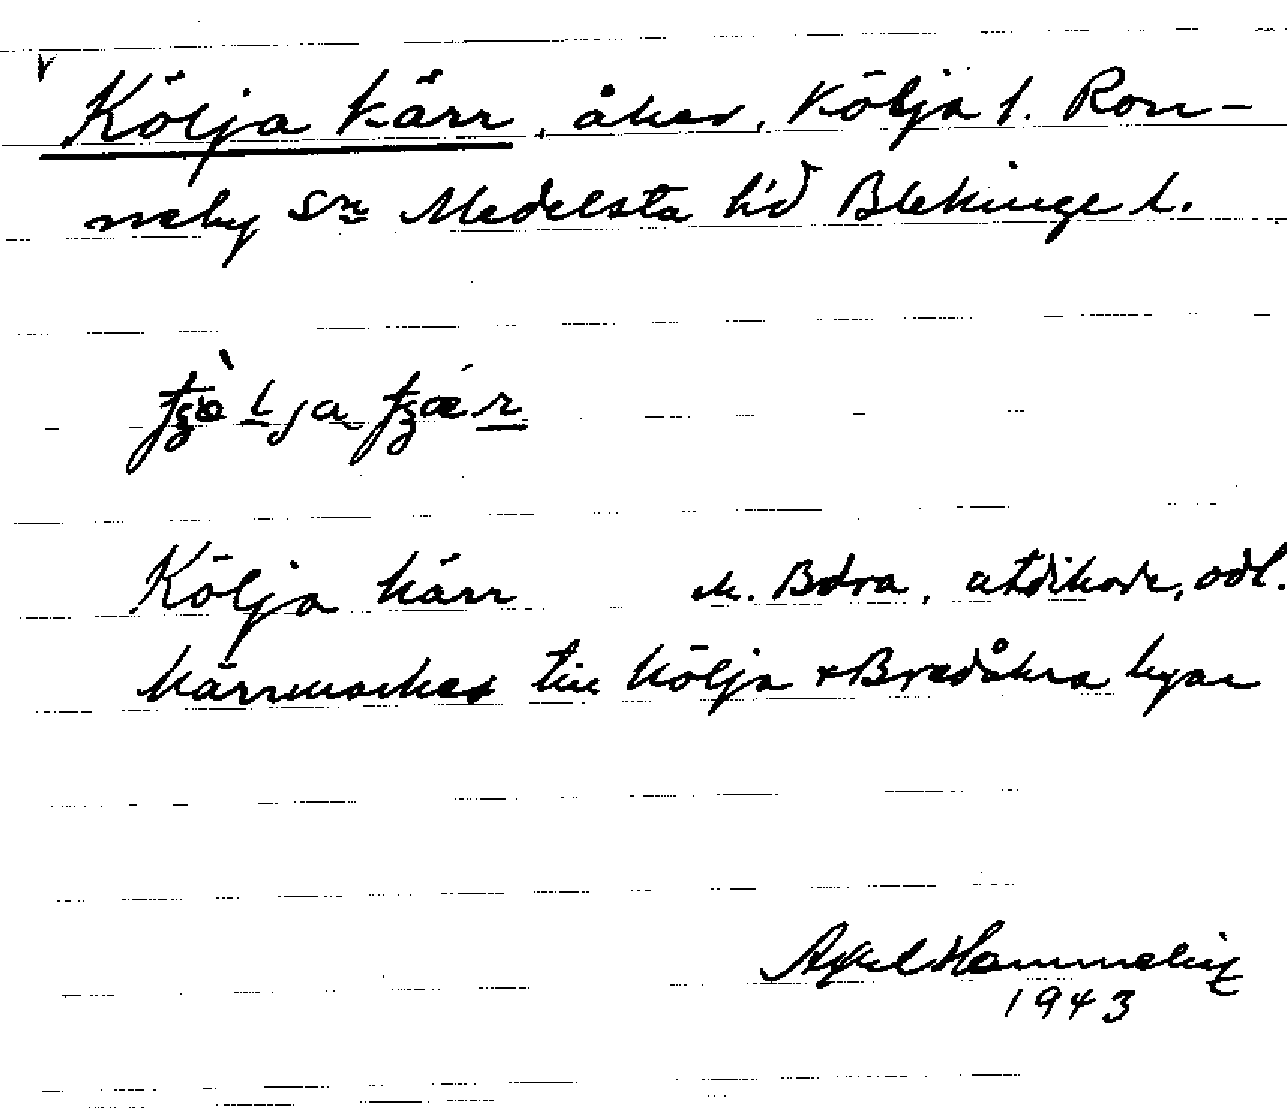 v
Kölja kärr, åker, Kölja f. Ron-
neby sn Medelsta hd Blekinge l.
Kölja kärr M. Bdra, utdikade, odl.
kärrmarker till Kölja + Bredåkra byar
Axel Hammelin
1943